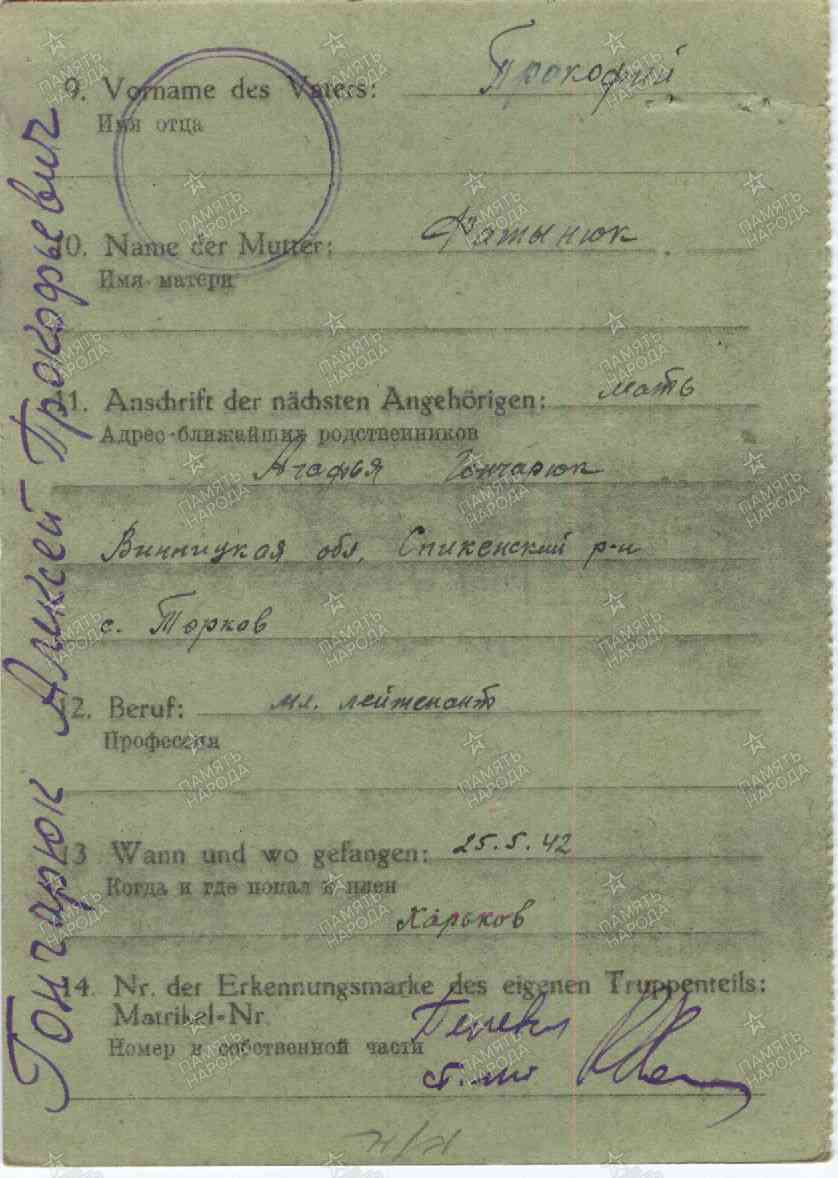 9. Vorname des Vaters: Прокофий
Имя отца
10. Name der Mutter: Фатынюк
Имя матери
11. Anschrift der nächsten Angehörigen: мать
Адрес ближайших родственников
Агафья Гончарюк
Винницкая обл, Спикенский р-н
с. Торков
12. Beruf: мл. лейтенант
Профессия
13 Wann und wo gefangen: 25.5.42
Когда и где попал в плен
Харьков
14. Nr. der Erkennungsmarke des eigenen Truppenteils:
Matrikel-Nr.
Номер в собственной части
Гончарюк Алексей Прокофьевич
ПАМЯТЬ НАРОДА